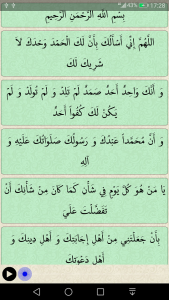 43% 17:28
بِسْمِ اللَّهِ الرَّحْمَنِ الرَّحِيمِ
اللَّهُمَّ إِنِّي أَسْأَلُكَ بِأَنَّ لَكَ الْحَمْدَ وَحْدَكَ لَا
شَرِيكَ لَكَ
وَ أَنَّكَ وَاحِدٌ أَحَدٌ صَمَدٌ لَمْ تَلِدْ وَ لَمْ تُولَدْ وَ لَمْ
يَكُنْ لَكَ كُفُواً أَحَدٌ
وَ أَنَّ مُحَمَّداً عَبْدُكَ وَ رَسُولُكَ صَلَوَاتُكَ عَلَيْهِ وَ
آلِهِ
يَا مَنْ هُوَ كُلَّ يَوْمٍ فِي شَأْنٍ كَمَا كَانَ مِنْ شَأْنِكَ أَنْ
تَفَضَّلْتَ عَلَيَّ
بِأَنْ جَعَلْتَنِي مِنْ أَهْلِ إِجَابَتِكَ وَ أَهْلِ دِينِكَ وَ
أَهْلِ دَعْوَتِكَ